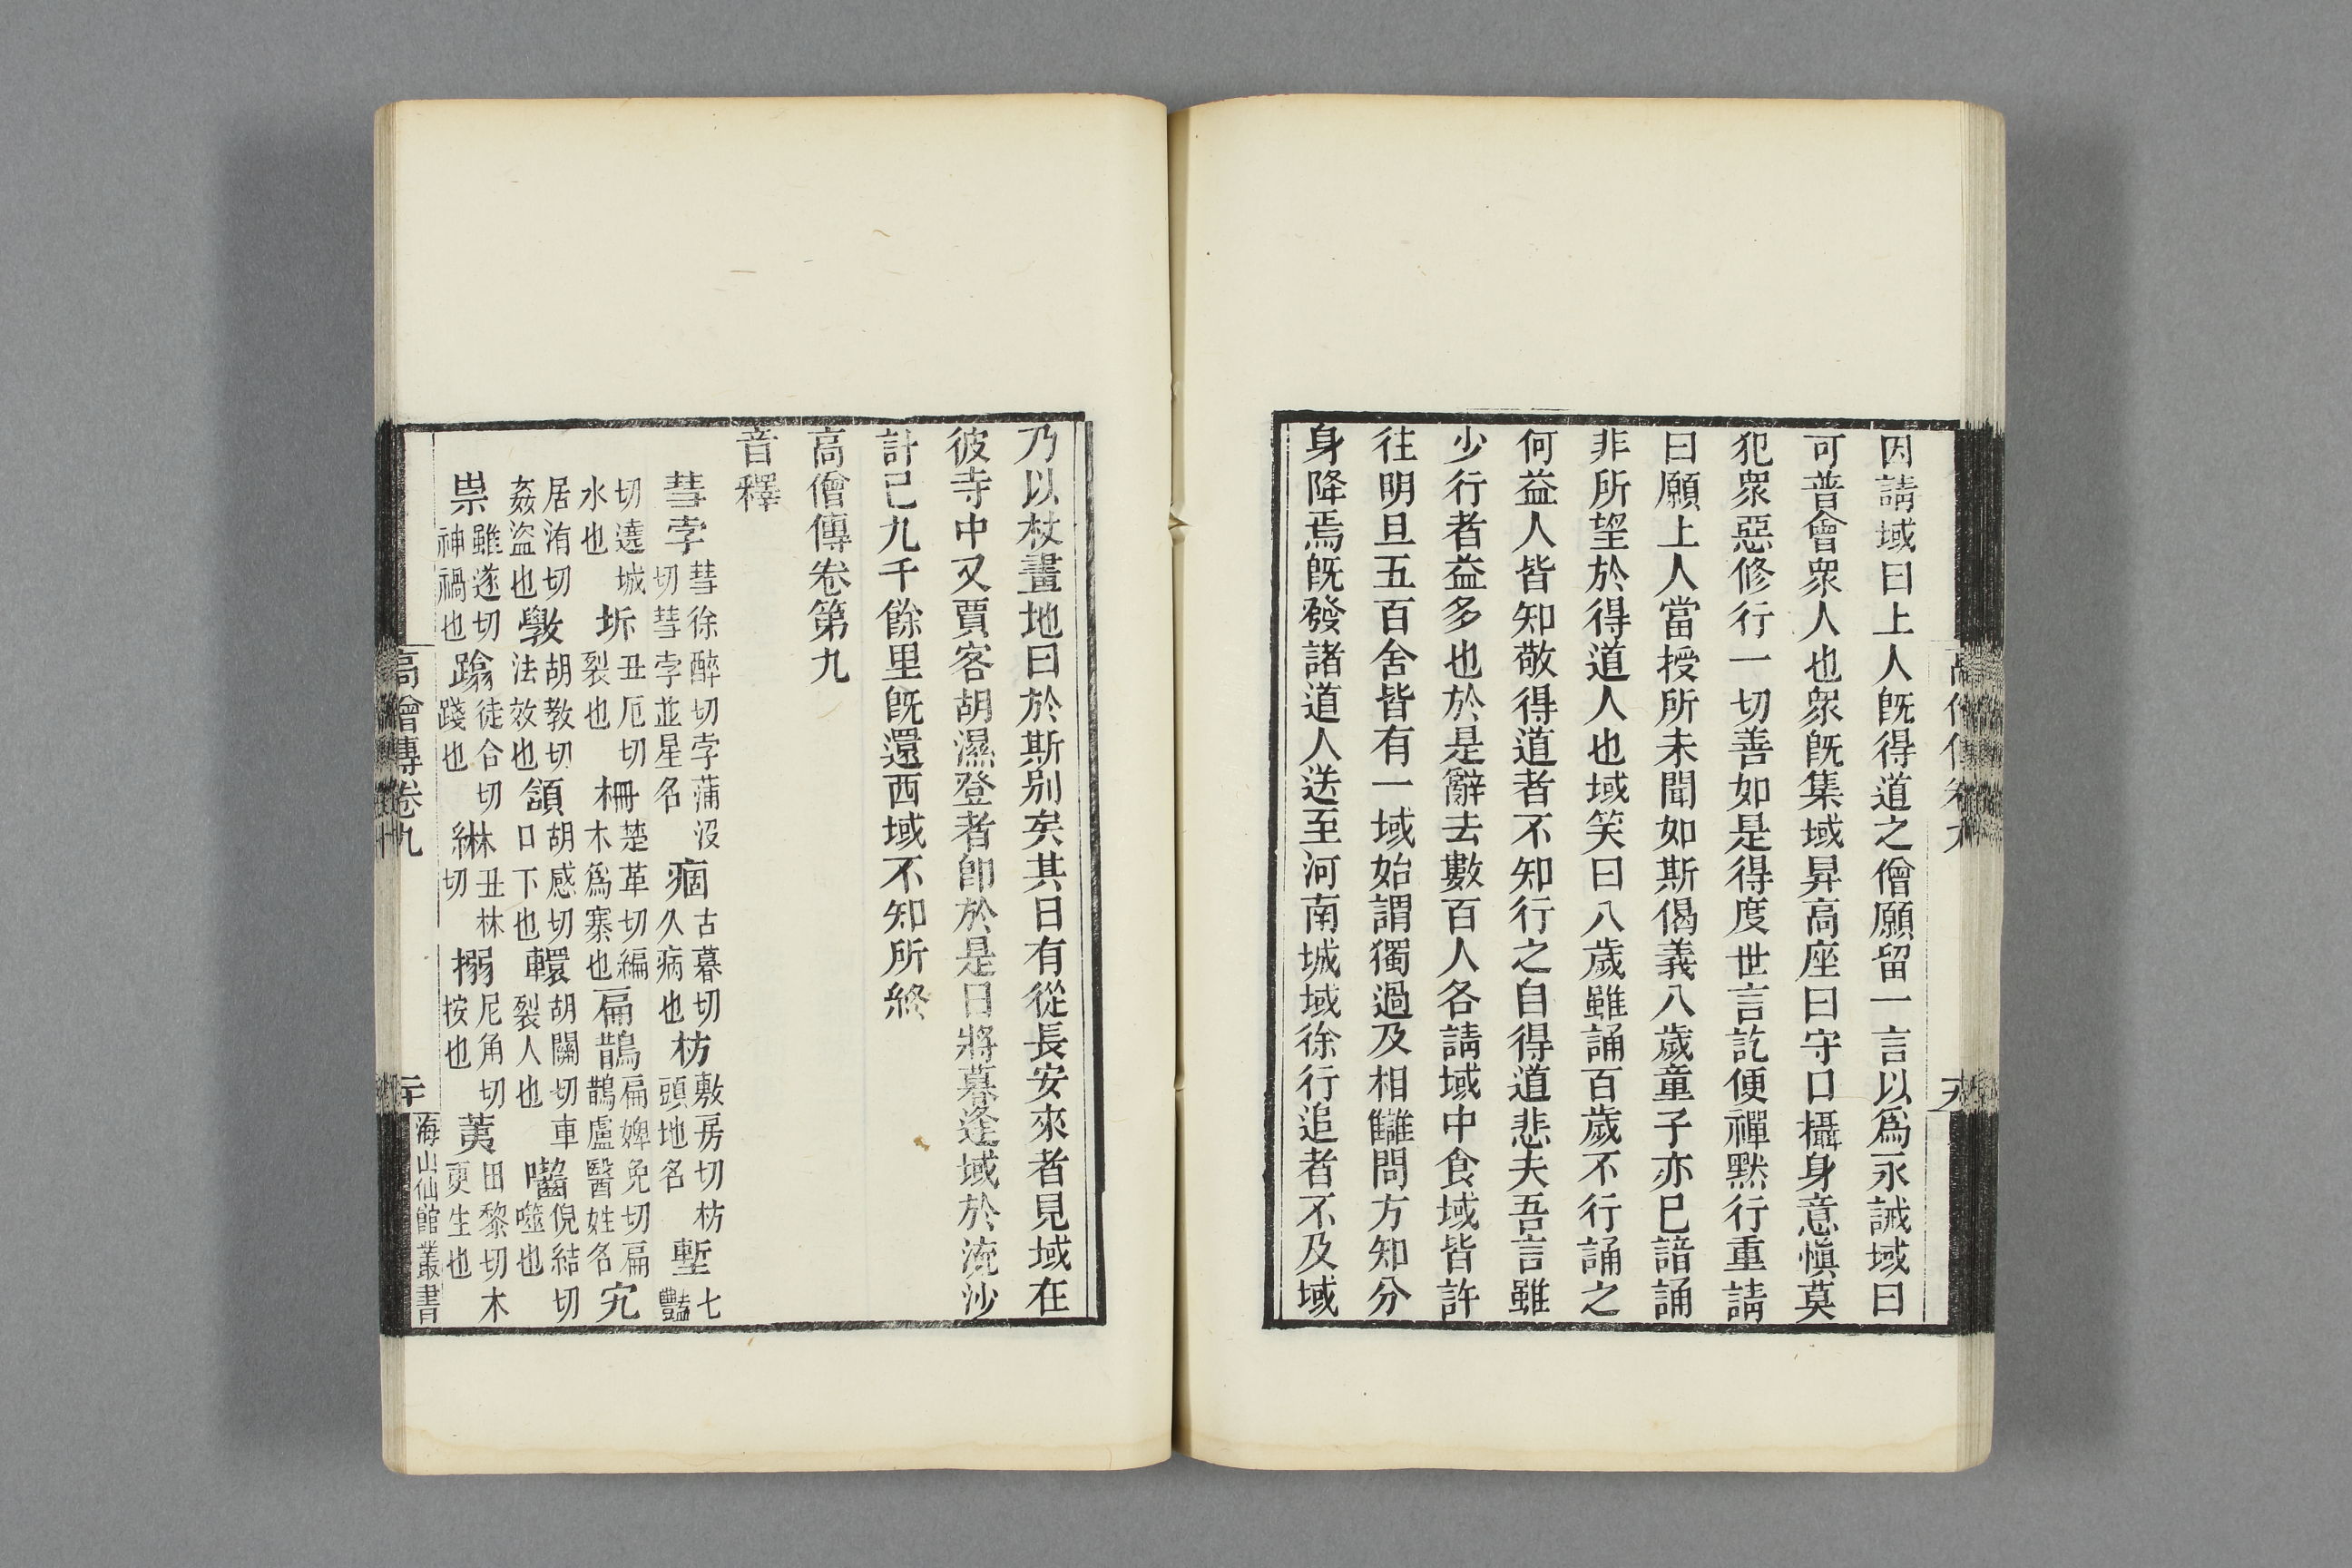 因請域曰上人既得道之僧願留一言以爲永誡域曰
可普會衆人也衆既集域昇高座曰守口攝身意愼莫
犯衆惡修行一切善如是得度世言訖便禪黙行重請
曰願上人當授所未聞如斯偈義八歲童子亦巳諳誦
非所望於得道人也域笑曰八歲雖誦百歲不行誦之
何益人皆知敬得道者不知行之自得道悲夫吾言雖
少行者益多也於是辭去數百人各請域中食域皆許
往明旦五百舍皆有一域始謂獨過及相讎問方知分
身降焉既發諸道人送至河南城域徐行追者不及域
乃以杖畫地曰於斯别矣其日有從長安來者見域在
彼寺中又賈客胡濕登者卽於是日將暮逢域於流沙
計已九千餘里既還西域不知所終
高僧傳卷第九
音釋
彗孛彗徐醉切孛蒲沒切彗孛並星名痼古暮切久病也枋敷房切枋頭地名塹七豔
切遶城水也坼丑厄切裂也柵楚革切編木爲寨也扁鵲扁婢免切扁鵲盧醫姓名宄
居洧切姦盜也斆胡教切法效也頷胡感切口下也轘胡關切車裂人也囓倪結切噬也
祟雖遂切神禍也蹹徒合切踐也綝丑林切搦尼角切按也荑田黎切木更生也
高僧傳卷九
二十
海山仙館叢書